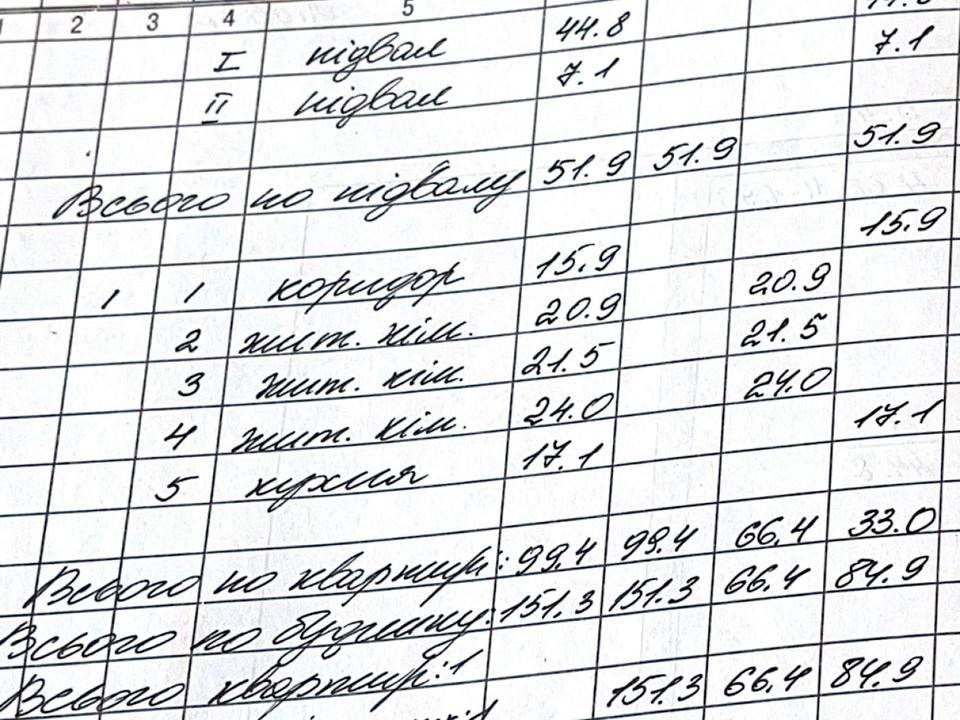 2 3 4 5
I підвал 44.8
II підвал 7.1 7.1
Всього по підвалу 51.9 51.9 51.9
1 1 коридор 15.9 15.9
2 жит. кім. 20.9 20.9
3 жит. кім. 21.5 21.5
4 жит. кім. 24.0 24.0
5 кухня 17.1 17.1
Всього по квартирі: 99.4 99.4 66.4 33.0
Всього по будинку: 151.3 151.3 66.4 84.9
Всього квартир: 1 151.3 66.4 84.9